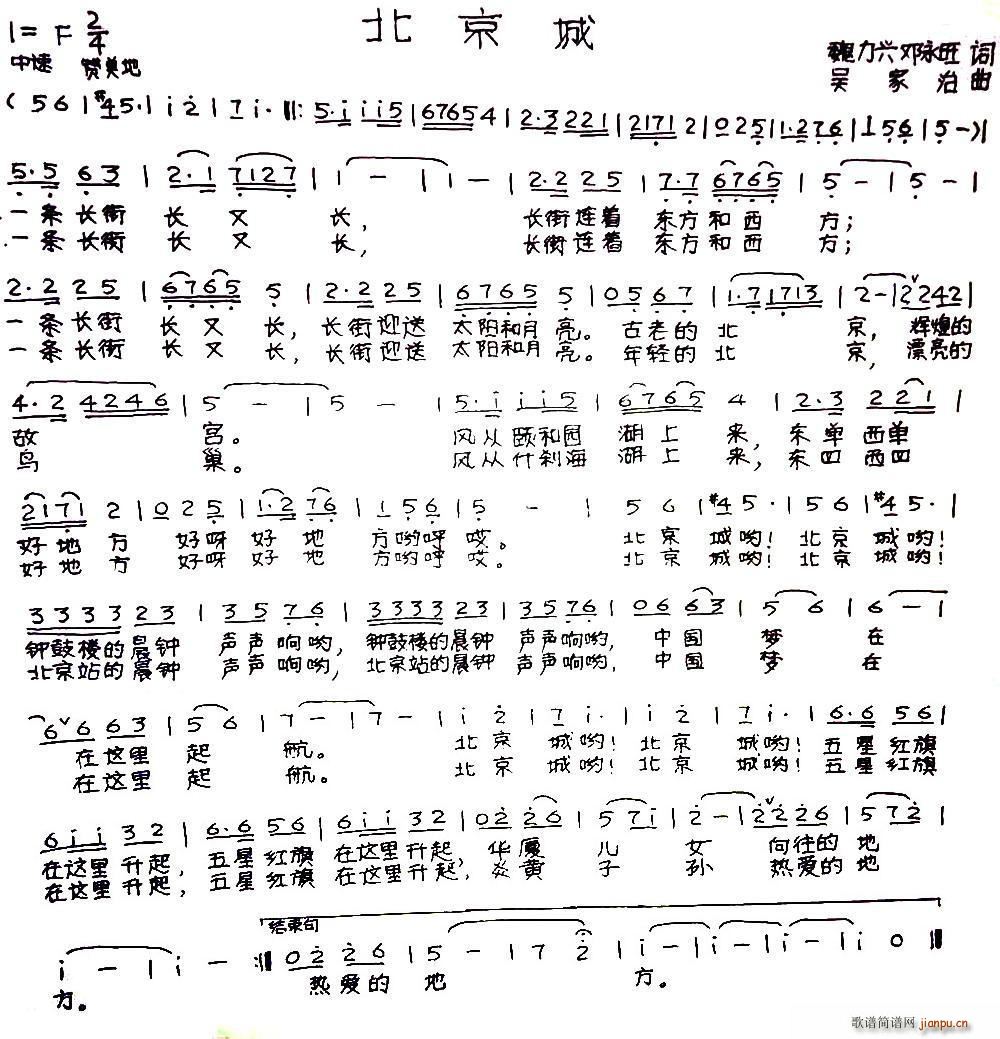 北京城
1= F 2/4
中速 赞美地
魏力兴 邓永旺 词
吴家治 曲
( 5 6 | #4 5· | i 2 | 7 i· ‖: 5· i i i 5 | 6765 4 | 2·3 221 | 2171 2 | 0 2 5 | 1·2 7 6 | 1 5 6 | 5 - ) |
5·5 6 3 | 2·1 7127 | 1 - | 1 - | 2·2 2 5 | 7·7 6765 | 5 - | 5 - |
一条长街 长 又 长, 长街连着 东方和西 方;
一条长街 长 又 长, 长街连着 东方和西 方;
2·2 2 5 | 6765 5 | 2·2 2 5 | 6765 5 | 0 5 6 7 | 1·71713 | 2 - | 2 2 4 2 |
一条长街 长 又 长, 长街迎送 太阳和月 亮。 古老的 北 京, 辉煌的
一条长街 长 又 长, 长街迎送 太阳和月 亮。 年轻的 北 京, 漂亮的
4·2 4246 | 5 - | 5 - | 5· i i i 5 | 6765 4 | 2·3 2 2 1 |
故 宫。 风从颐和园 湖上 来, 东单西单
鸟 巢。 风从什刹海 湖上 来, 东四西四
2171 2 | 0 2 5 | 1·2 7 6 | 1 5 6 | 5 - | 5 6 | #4 5· | 5 6 | #4 5· |
好地方 好呀好 地 方哟呼 哎。 北京 城哟! 北京 城哟!
好地方 好呀好 地 方哟呼 哎。 北京 城哟! 北京 城哟!
3 3 3 3 2 3 | 3 5 7 6 | 3 3 3 3 2 3 | 3 5 7 6 | 0 6 6 3 | 5 6 | 6 - |
钟鼓楼的晨钟 声声响哟, 钟鼓楼的晨钟 声声响哟, 中国 梦 在
北京站的晨钟 声声响哟, 北京站的晨钟 声声响哟, 中国 梦 在
6 6 6 3 | 5 6 | 7 - | 7 - | i 2 | 7 i· | i 2 | 7 i· | 6·6 5 6 |
在这里 起 航。 北京 城哟! 北京 城哟! 五星红旗
在这里 起 航。 北京 城哟! 北京 城哟! 五星红旗
6 i i 3 2 | 6·6 5 6 | 6 i i 3 2 | 0 2 2 6 | 5 7 i | 2 - | 2 2 2 6 | 5 7 2 |
在这里升起, 五星红旗 在这里升起, 华夏 儿 女 向往的 地
在这里升起, 五星红旗 在这里升起, 炎黄 子 孙 热爱的 地
结束句
i - | i - :‖ 0 2 2 6 | 5 - | 7 2 | i - | i - | i - | i 0 ‖
方。 热爱的 地 方。
歌谱简谱网 jianpu.cn